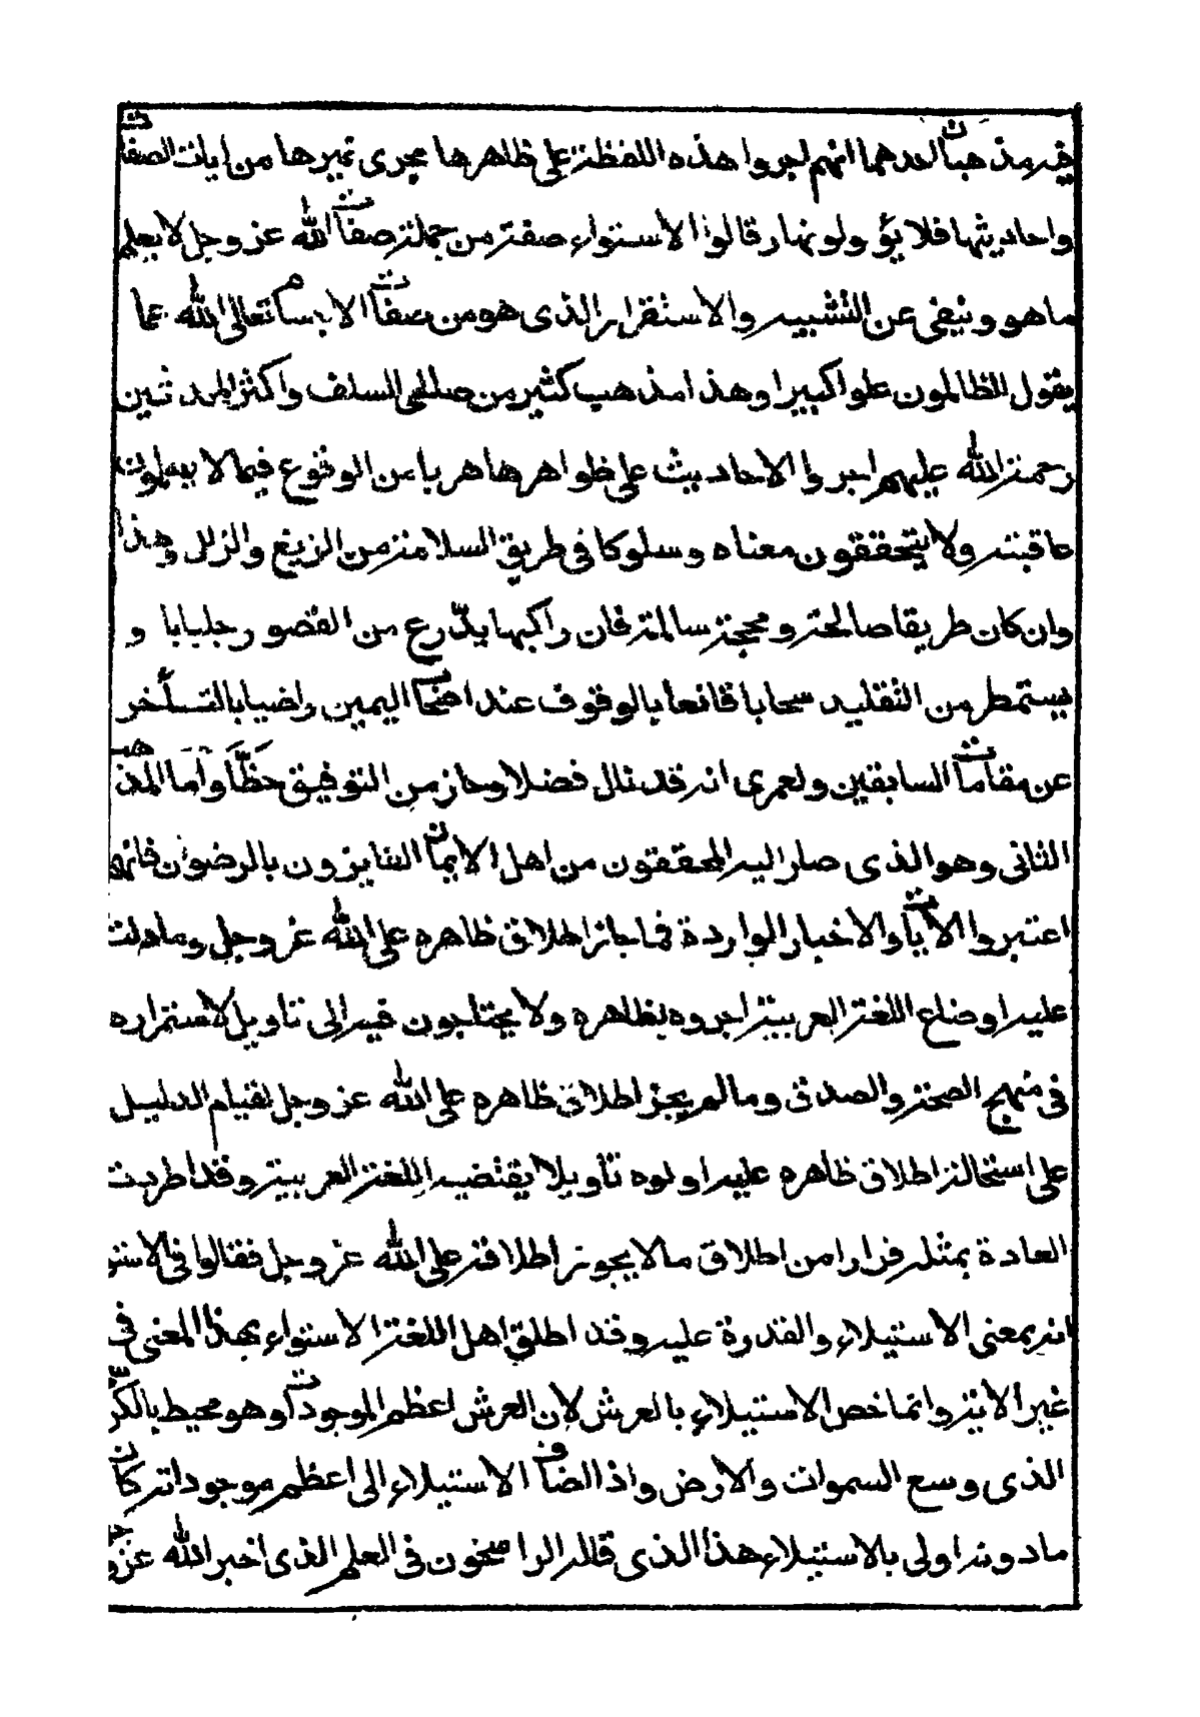 فيه مذهبان احدهما انهم اجروا هذه اللفظة على ظاهرها مجرى غيرها من ايات الصفات
واحاديثها فلا يؤولونها وقالوا الاستواء صفة من جملة صفات الله عز وجل لا يعلم
ما هو وينفى عن التشبيه والاستقرار الذى هو من صفات الاجسام تعالى الله عما
يقول الظالمون علوا كبيرا وهذا مذهب كثير من صالحى السلف واكثر المحدثين
رحمة الله عليهم اجروا الاحاديث على ظواهرها هربا من الوقوع فيما لا يعلمون
عاقبته ولا يتحققون معناه وسلوكا فى طريق السلامة من الزيغ والزلل وهذا
وان كان طريقا صالحة ومحجة سالمة فان راكبها يدّرع من القصور جلبابا و
يستمطر من التقليد سحابا قانعا بالوقوف عند اصحاب اليمين راضيا بالتسأخر
عن مقامات السابقين ولعمرى انه قد نال فضلا وحاز من التوفيق حظًّا وأما المذهب
الثانى وهو الذى صار اليه المحققون من اهل الايمان الفايزون بالرضوان فانهم
اعتبروا الايات والاخبار الواردة فما جاز اطلاق ظاهره على الله عز وجل وما دلت
عليه اوضاع اللغة العربية اجروه بظاهره ولا يجتلبون فيه الى تاويل لاستمراره
فى منهج الصحة والصدق وما لم يجز اطلاق ظاهره على الله عز وجل لقيام الدليل
على استحالة اطلاق ظاهره عليه اولوه تاويلا يقتضيه اللغة العربية وقد اطردت
العادة بمثله فرارا من اطلاق ما لا يجوز اطلاقه على الله عز وجل فقالوا فى الاستو
انه بمعنى الاستيلاء والقدرة عليه وقد اطلق اهل اللغة الاستواء بهذا المعنى فى
غير الاية وانما خص الاستيلاء بالعرش لان العرش اعظم الموجودات وهو محيط بالكرسى
الذى وسع السموات والارض واذا اضاف الاستيلاء الى اعظم موجوداته كان
ما دونه اولى بالاستيلاء هذا الذى قاله الراسخون فى العلم الذى اخبر الله عز وجل